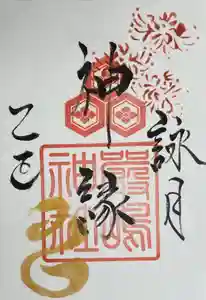 詠月
神縁
嚴嶋
神社
乙巳